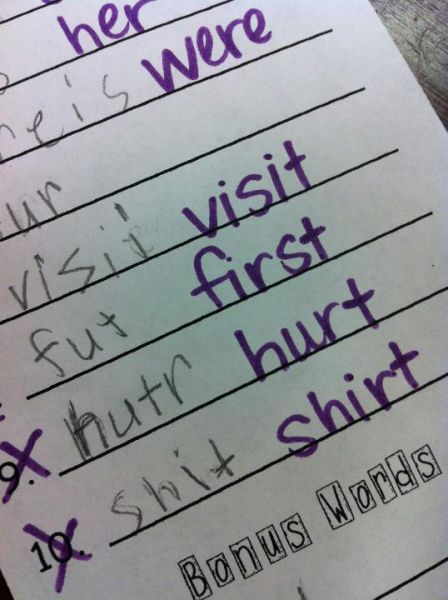 her
were
visit visit
fut first
9. hutr hurt
10. shit shirt
Bonus Words